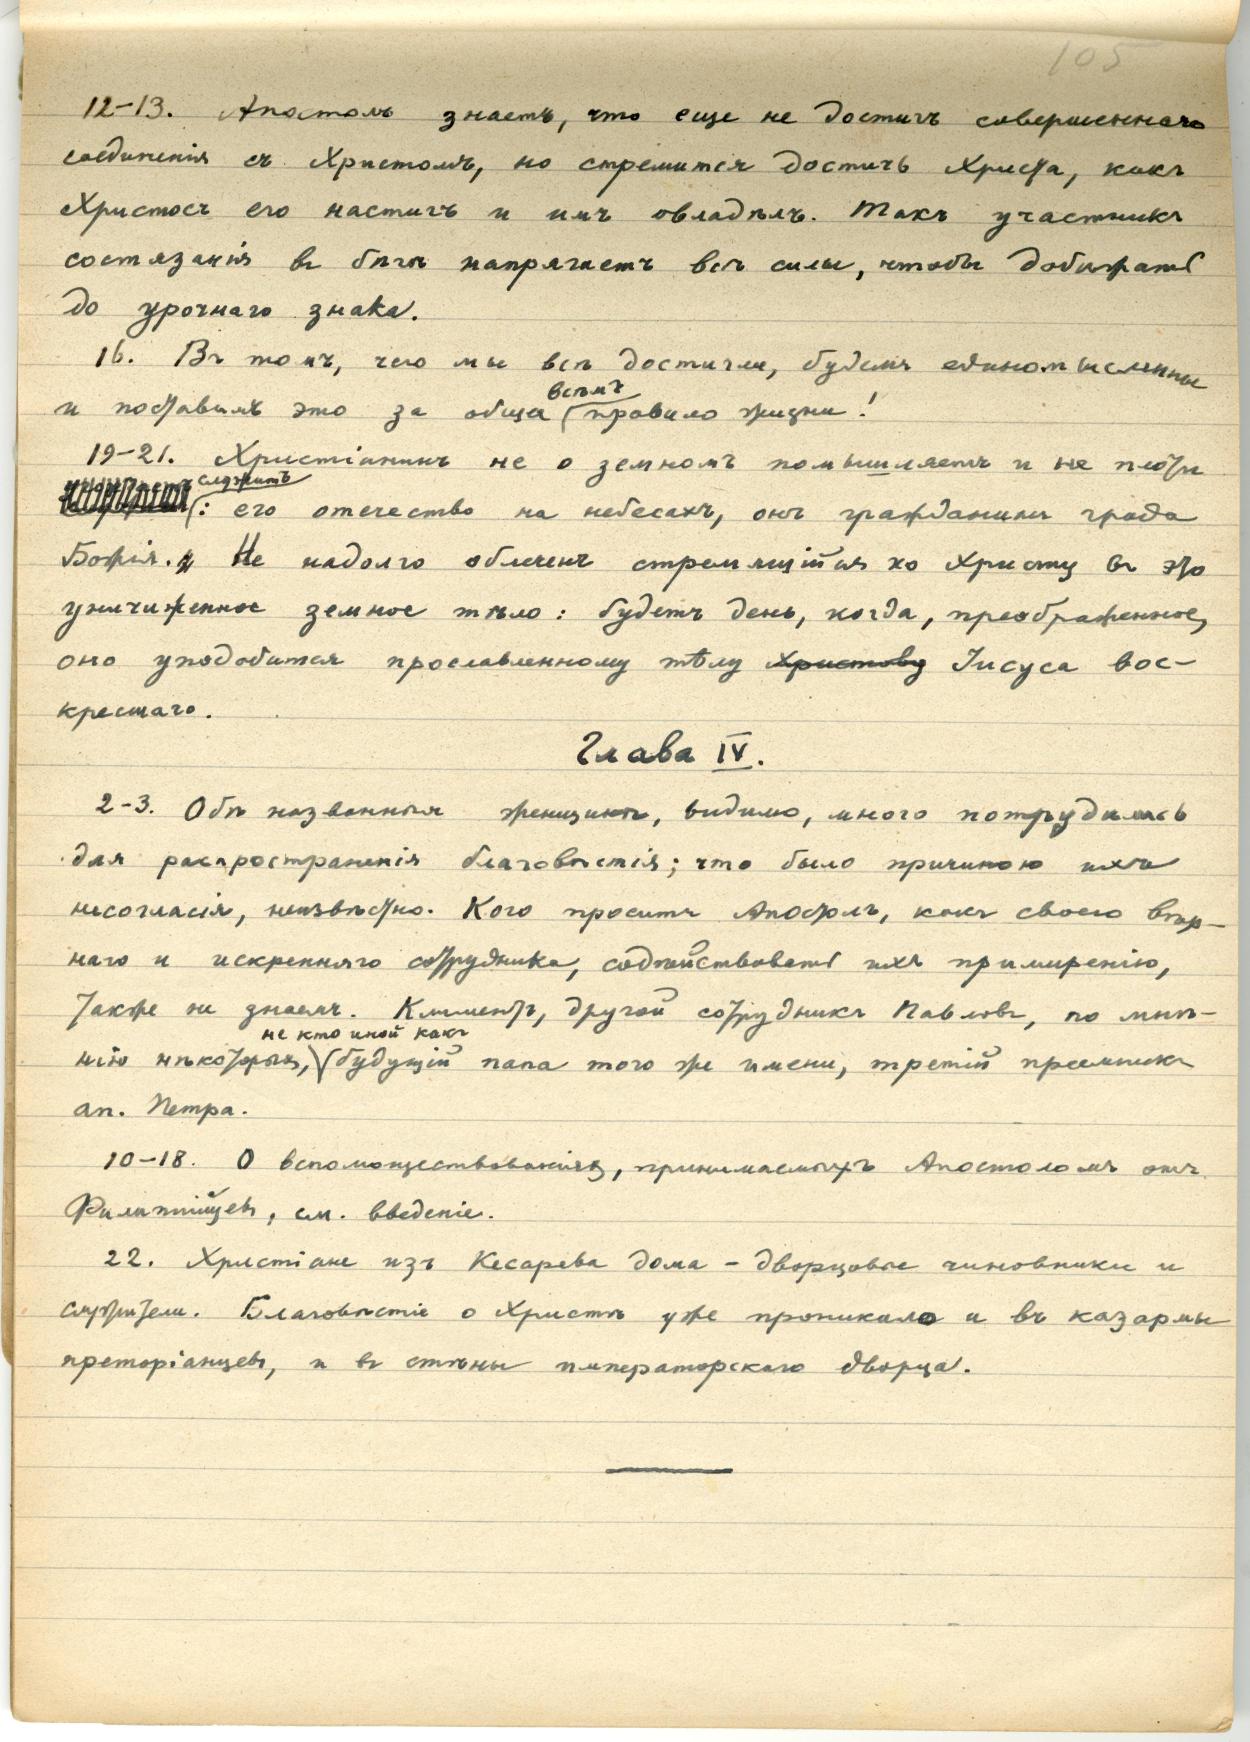 105
12–13. Апостолъ знаетъ, что еще не достигъ совершеннаго
соединенія съ Христомъ, но стремится достичь Христа, какъ
Христосъ его настигъ и имъ овладѣлъ. Такъ участникъ
состязанія въ бѣгѣ напрягаетъ всѣ силы, чтобы добѣжать
до урочнаго знака.
16. Въ томъ, чего мы всѣ достигли, будемъ единомысленны
всѣмъ
и поставимъ это за общее правило жизни!
19–21. Христіанинъ не о земномъ помышляетъ и не плоти
служитъ
: его отечество на небесахъ, онъ гражданинъ града
Божія. Не надолго облеченъ стремящійся ко Христу въ это
уничиженное земное тѣло: будетъ день, когда, преображенное,
оно уподобится прославленному тѣлу Христову Іисуса вос–
кресшаго.
Глава IV.
2–3. Обѣ названныя женщины, видимо, много потрудились
для распространенія благовѣстія; что было причиною ихъ
несогласія, неизвѣстно. Кого проситъ Апостолъ, какъ своего вѣр–
наго и искренняго сотрудника, содѣйствовать ихъ примиренію,
также не знаемъ. Климентъ, другой сотрудникъ Павловъ, по мнѣ–
не кто иной какъ
нію нѣкоторыхъ, будущій папа того же имени, третій преемникъ
ап. Петра.
10–18. О вспомоществованіяхъ, принимаемыхъ Апостоломъ отъ
Филиппійцевъ, см. введеніе.
22. Христіане изъ Кесарева дома – дворцовые чиновники и
служители. Благовѣстіе о Христѣ уже проникало и въ казармы
преторіанцевъ, и въ стѣны императорскаго дворца.